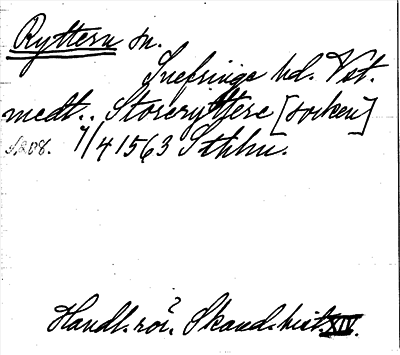 Ryttern sn.
Snefringe hd. Vst.
medt.. Storeryttere [socken]
s. 208. 7/4 1563 Sthlm.
Handl. rör. Skand. hist. XIV.